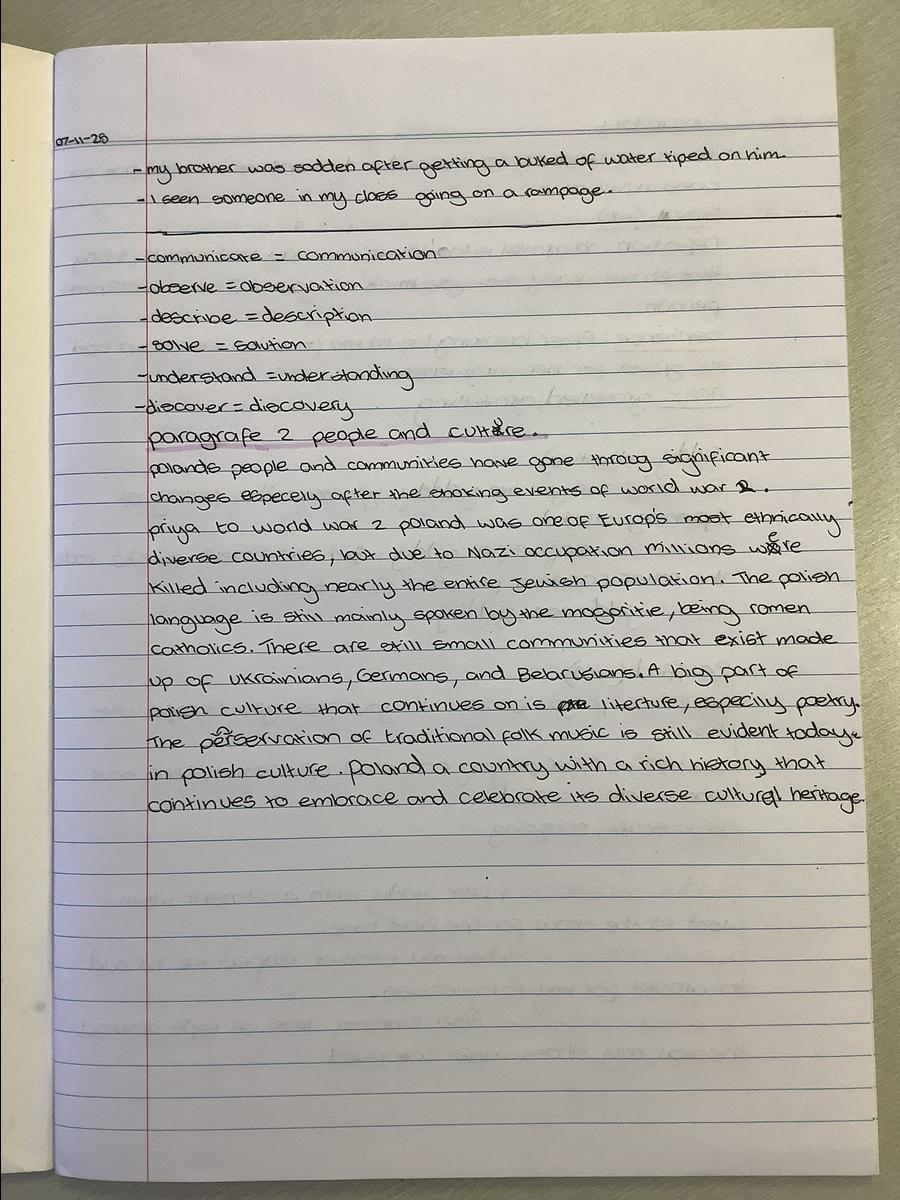 07-11-25
- my brother was sodden after getting a buked of water tiped on him.
- I seen someone in my class going on a rampage.
- communicate = communication
- observe = observation
- describe = description
- solve = saution
- understand = understanding
- discover = discovery
paragrafe 2 people and culture.
polands people and communities have gone throug significant
changes especely after the shoking events of world war 2.
priya to world war 2 poland was one of Europ's most ethnically
diverse countries, but due to Nazi occupation millions were
killed including nearly the entire Jewish population. The polish
language is still mainly spoken by the mogoritie, being romen
catholics. There are still small communities that exist made
up of Ukrainians, Germans, and Belarusians. A big part of
polish culture that continues on is literture, especily poetry.
The perservation of traditional folk music is still evident today
in polish culture. Poland a country with a rich history that
continues to embrace and celebrate its diverse cultural heritage.